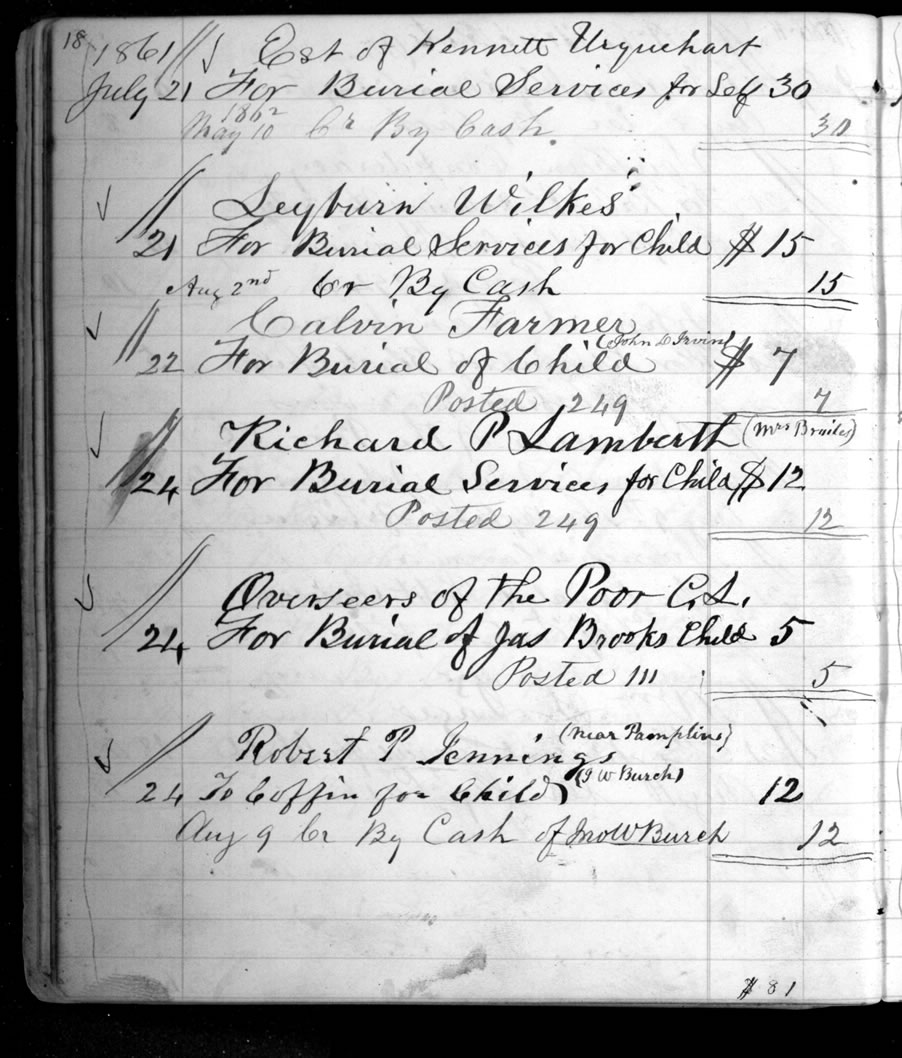 18
1861 Est of Kennett Urquehart
July 21 For Burial Services for Self 30
1862
May 10 Cr By Cash 30
Leyburn Wilkes
21 For Burial Services for Child $ 15
Aug 2nd Cr By Cash 15
Calvin Farmer
(John D Irvin)
22 For Burial of Child $ 7
Posted 249 7
Richard P Lamberth (Mrs )
24 For Burial Services for Child $ 12
Posted 249 12
Overseers of the Poor C.L.
24 For Burial of Jas Brooks Child 5
Posted 111 5
Robert P Jennings (near Pamplins)
(J W Burch)
24 To Coffin for Child 12
Aug 9 Cr By Cash of Jno W Burch 12
$ 81